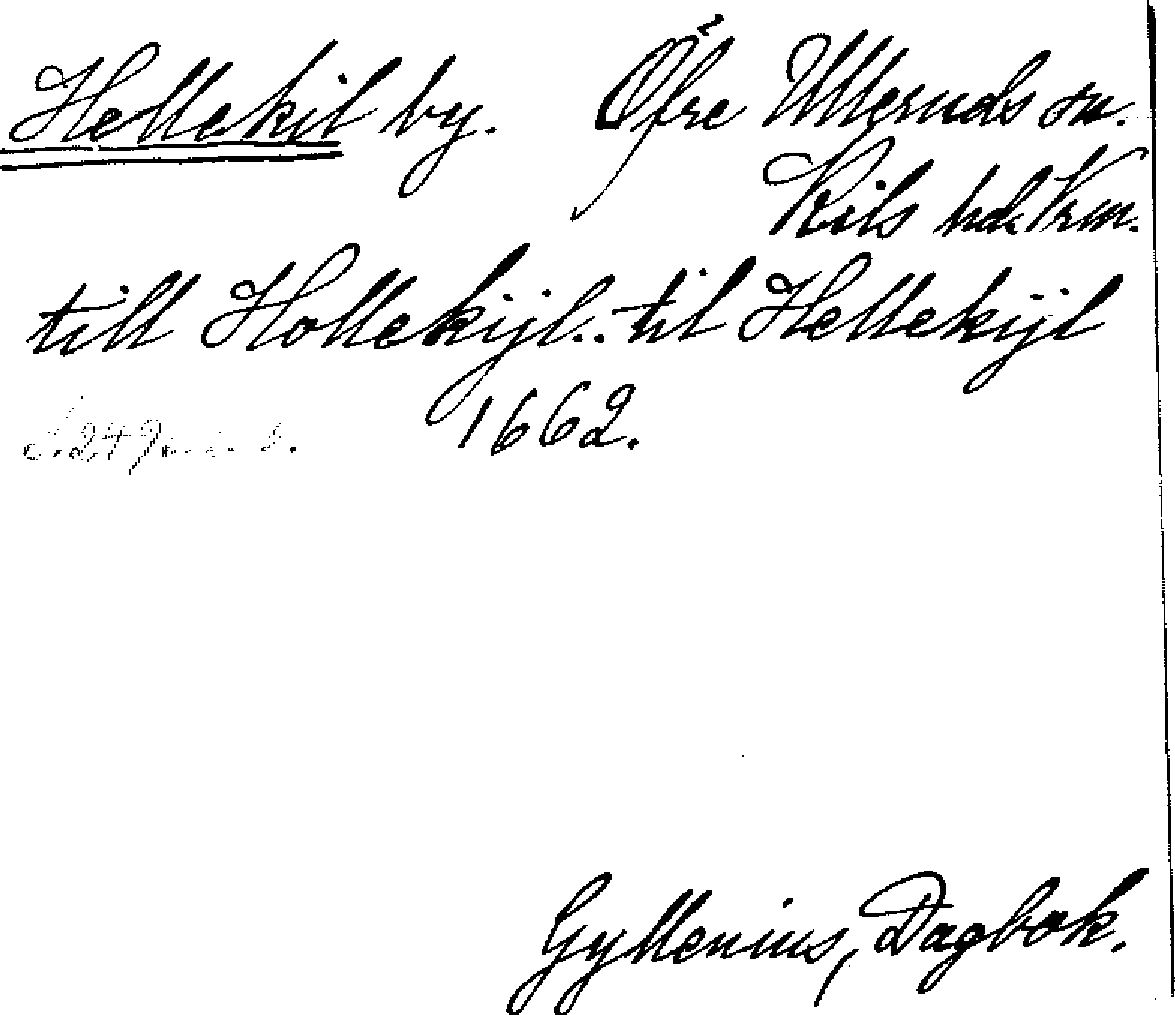 Hellekil by. Öfre Ulleruds sn.
Kils hd. Vrm.
till Hollekijl.. til Hellekijl
1662.
S. 249
Gyllenius, Dagbok.